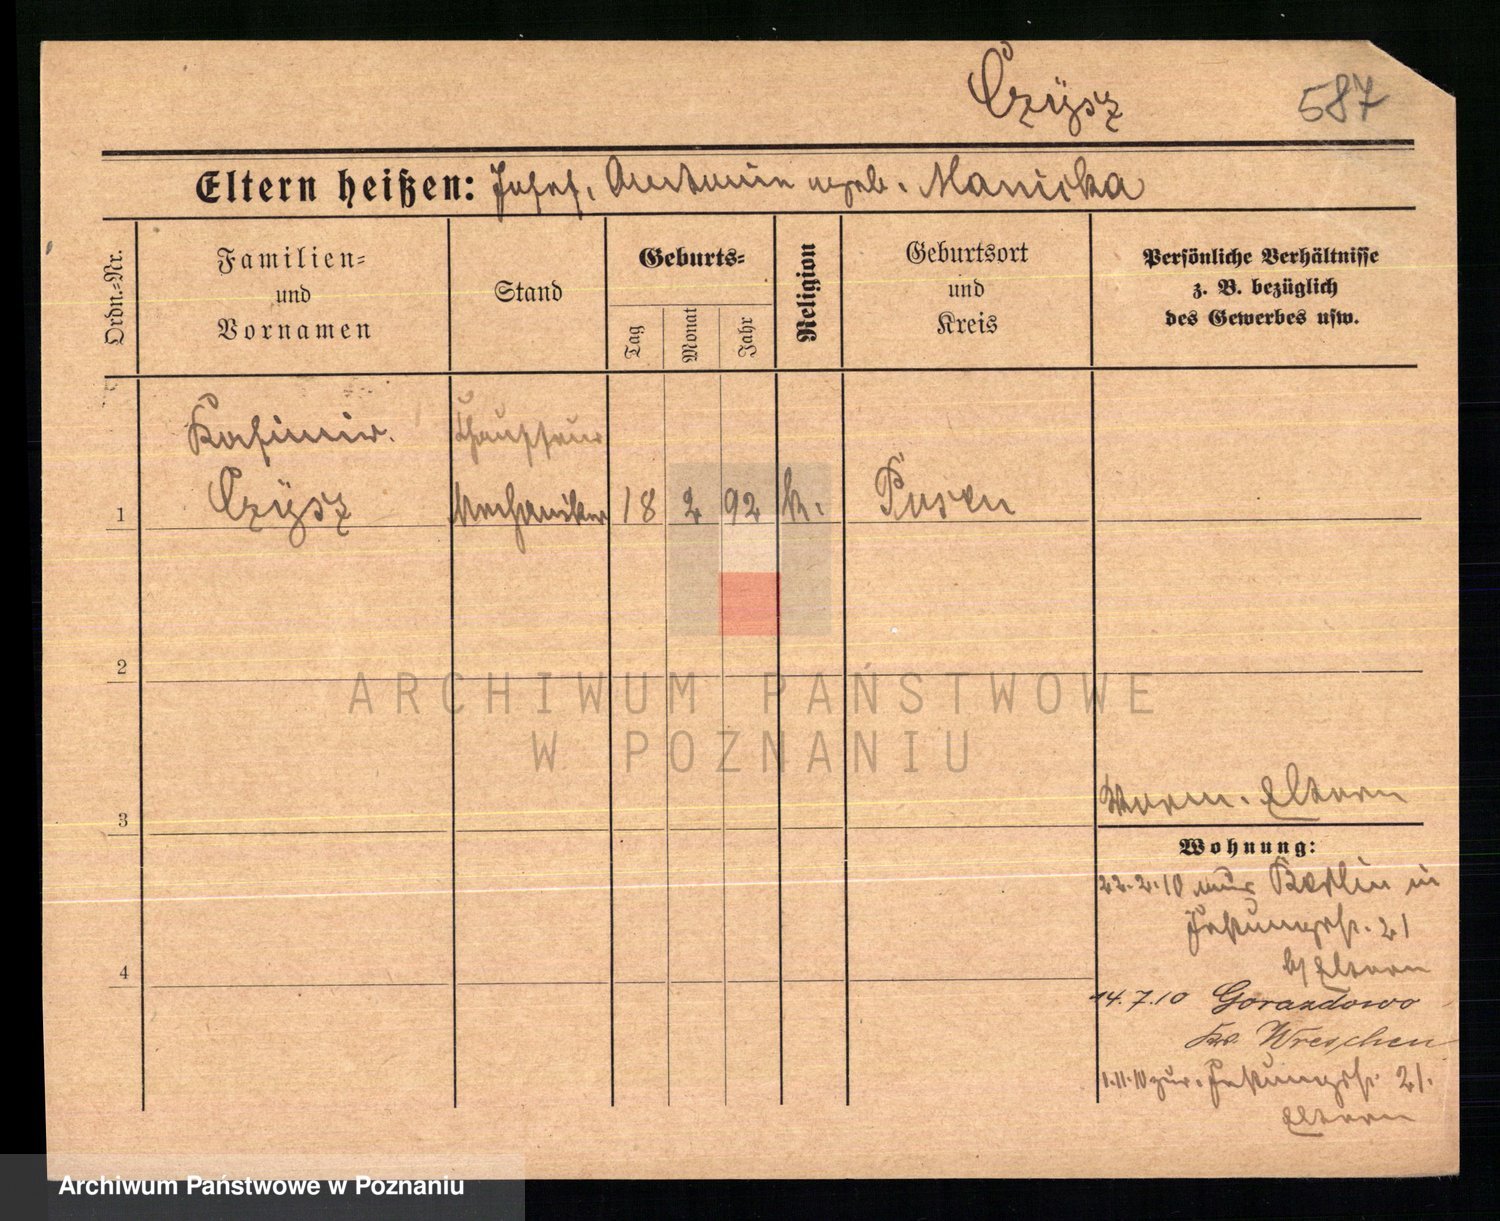 Czÿsz
587
Eltern heißen: Josef, Antonie geb. Manicka
Ordn.=Nr.
Familien=
und
Vornamen
Stand
Geburts=
Tag
Monat
Jahr
Religion
Geburtsort
und
Kreis
Persönliche Verhältnisse
z. B. bezüglich
des Gewerbes usw.
Kasimir.
Czÿsz
Chauffeur
Mechaniker
18
2
92
k.
Posen
1
2
3
4
Eltern
Wohnung:
22.2.10 aus Berlin in
Festungsstr. 21
b/ Eltern
14.7.10 Gorazdowo
Kr. Wreschen
1.11.10 zur. Festungsstr. 21.
Eltern
ARCHIWUM PAŃSTWOWE
W POZNANIU
Archiwum Państwowe w Poznaniu